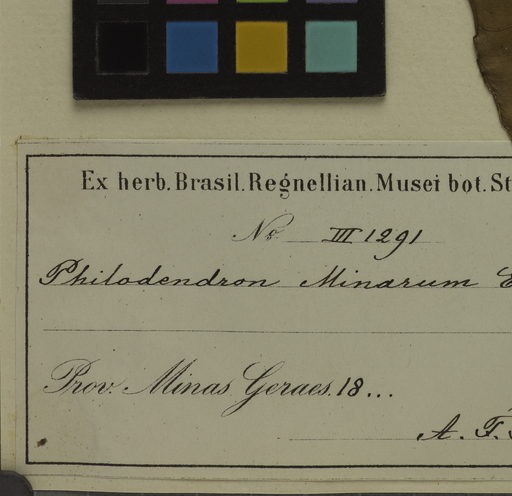 Ex herb. Brasil. Regnellian. Musei bot. St
No III 1291
Philodendron Minarum E
Prov. Minas Geraes. 18...
A. F.